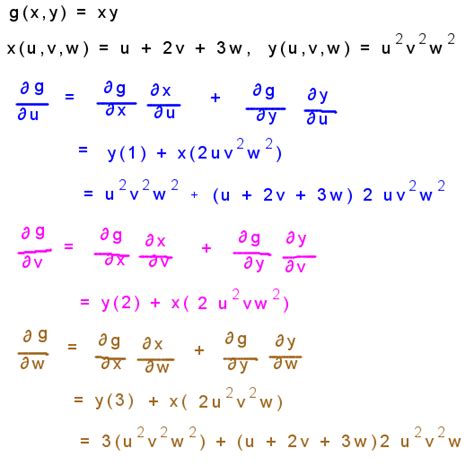 g(x,y) = xy
x(u,v,w) = u + 2v + 3w, y(u,v,w) = u²v²w²
∂g/∂u = ∂g/∂x ∂x/∂u + ∂g/∂y ∂y/∂u
= y(1) + x(2uv²w²)
= u²v²w² + (u + 2v + 3w) 2 uv²w²
∂g/∂v = ∂g/∂x ∂x/∂v + ∂g/∂y ∂y/∂v
= y(2) + x( 2 u²vw²)
∂g/∂w = ∂g/∂x ∂x/∂w + ∂g/∂y ∂y/∂w
= y(3) + x( 2u²v²w)
= 3(u²v²w²) + (u + 2v + 3w)2 u²v²w